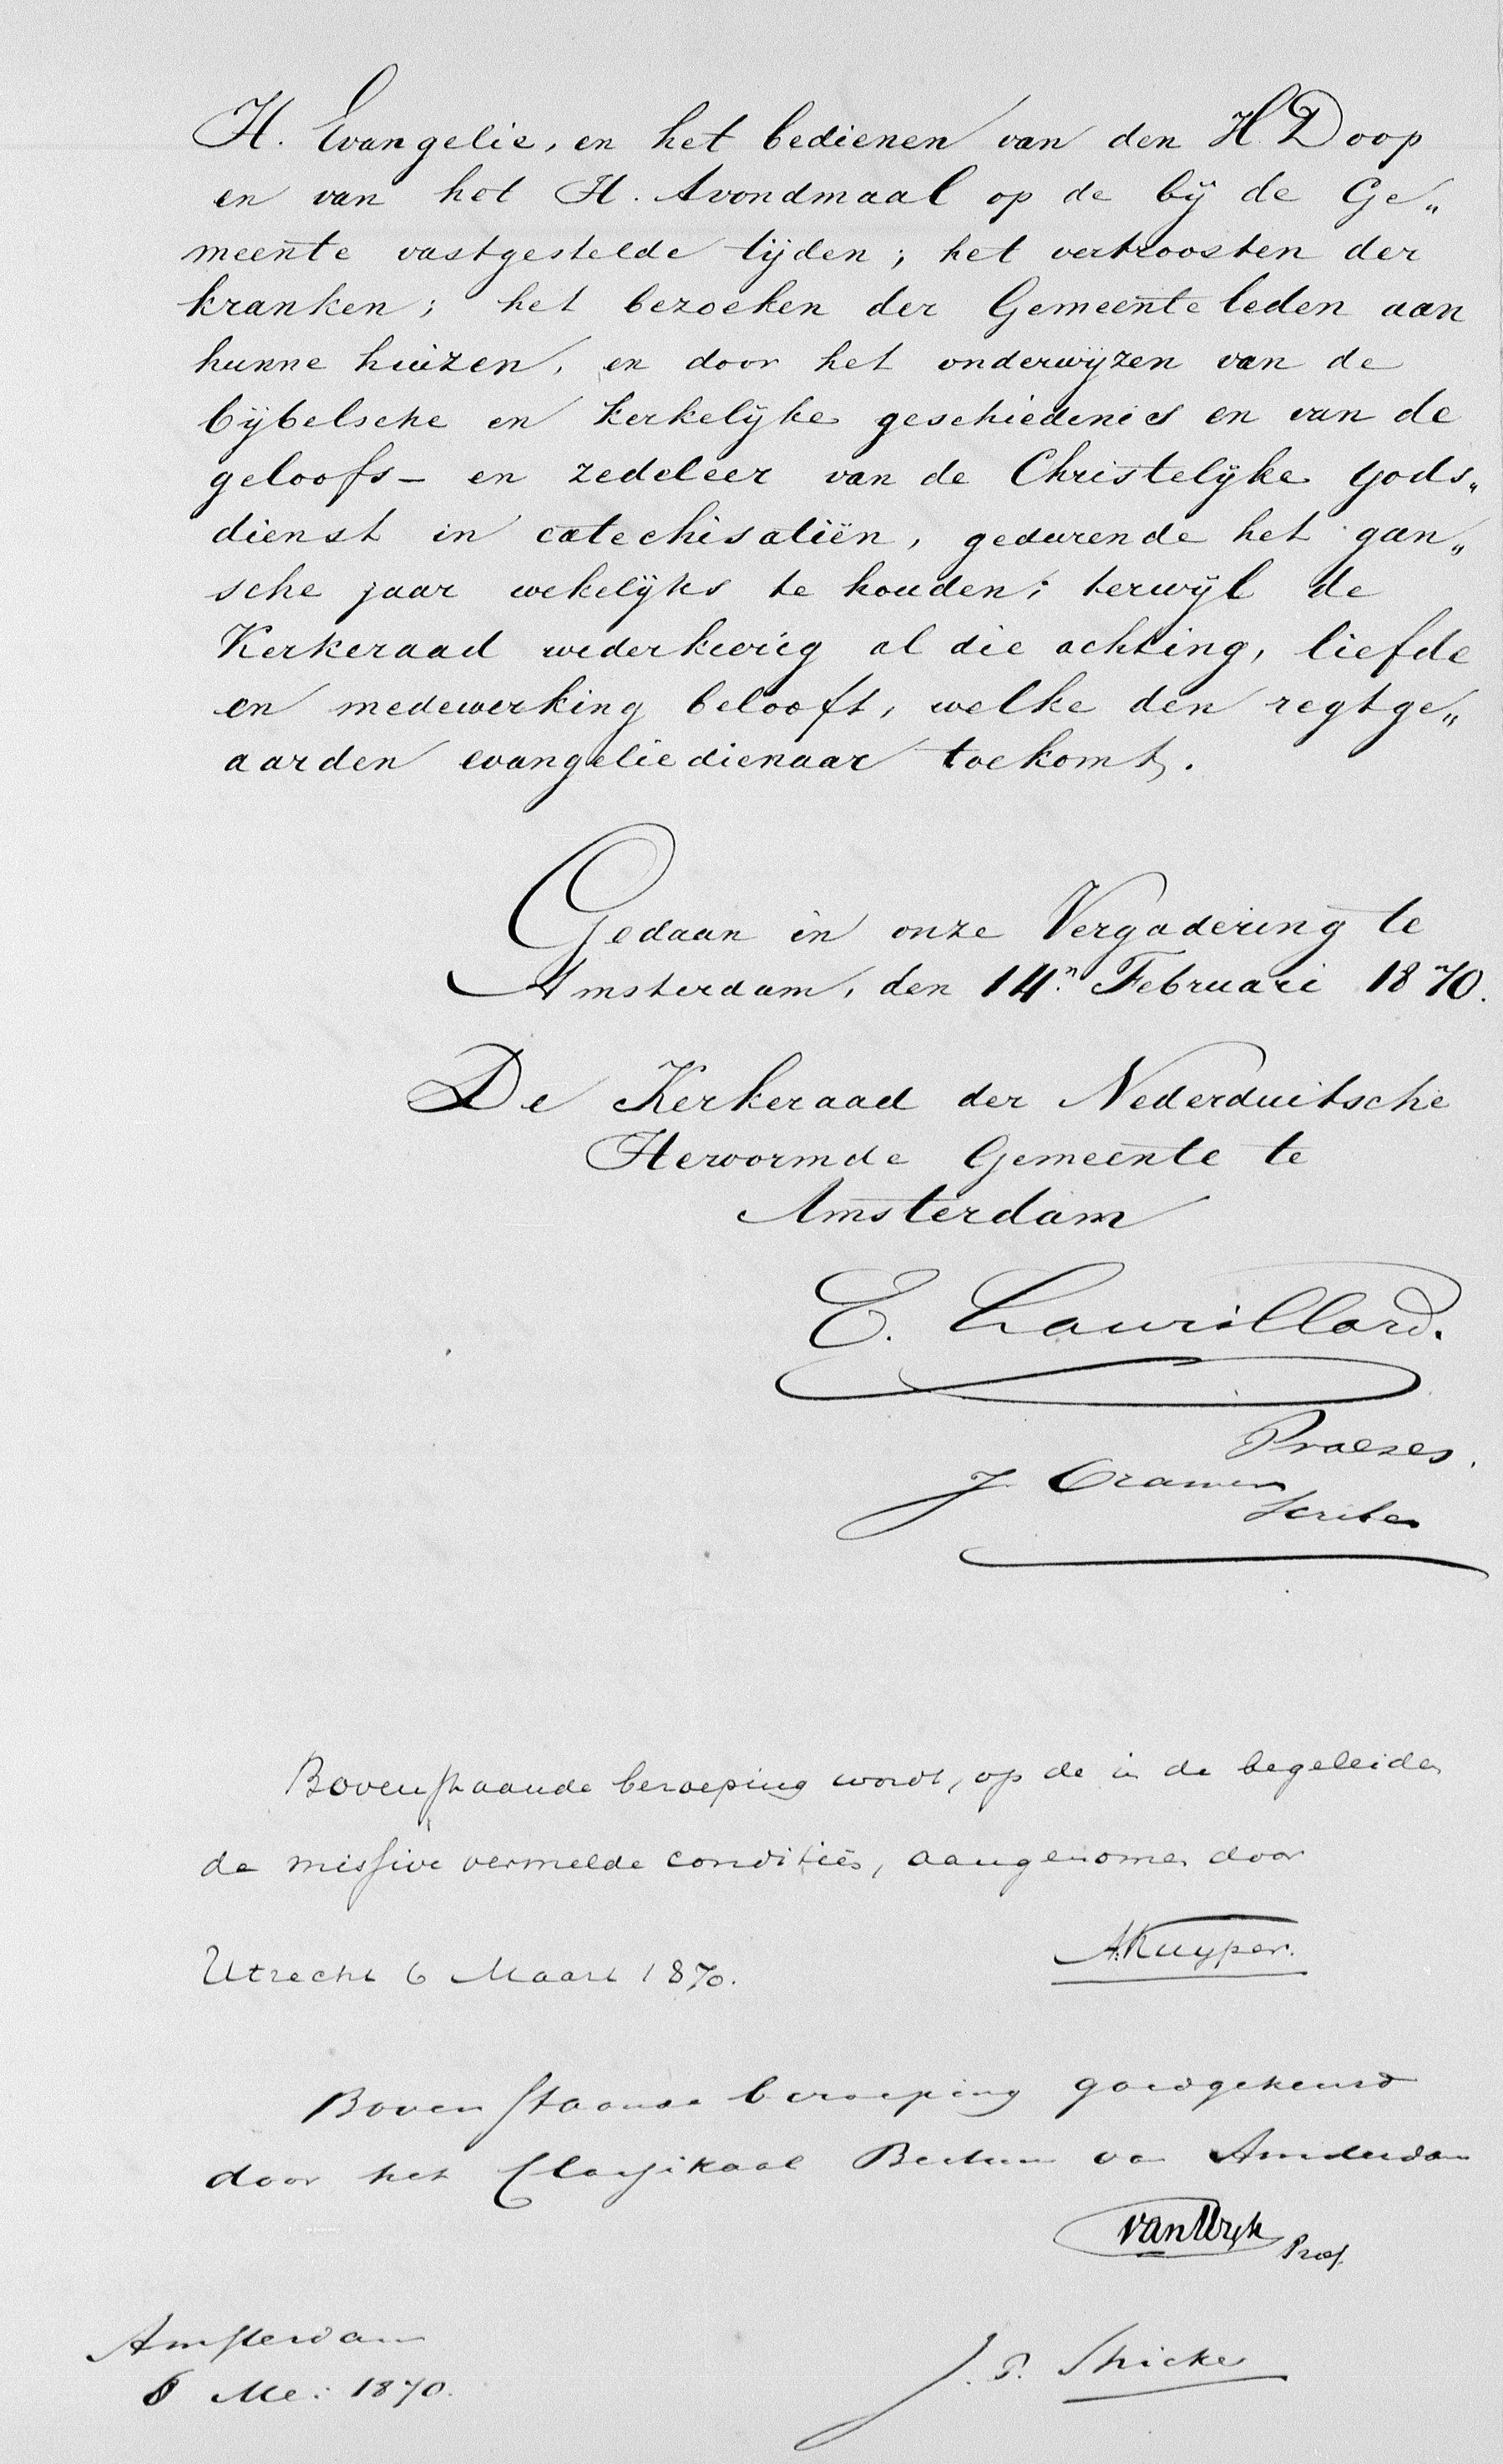 H. Evangelie, en het bedienen van den H. Doop
en van het H. Avondmaal op de bij de Ge„
meente vastgestelde tijden; het vertroosten der
kranken; het bezoeken der Gemeente leden aan
hunne huizen, en door het onderwijzen van de
bijbelsche en kerkelijke geschiedenis en van de
geloofs- en zedeleer van de Christelijke Gods„
dienst in catechisatiën, gedurende het gan„
sche jaar wekelijks te houden; terwijl de
Kerkeraad wederkeerig al die achting, liefde
en medewerking belooft, welke den regtge„
aarden evangeliedienaar toekomt.
Gedaan in onze Vergadering te
Amsterdam, den 14.n Februari 1870.
De Kerkeraad der Nederduitsche
Hervormde Gemeente te
Amsterdam
E. Laurillard.
Praeses.
J. Cramer
Scriba
Bovenstaande beroeping wordt, op de in de begeleiden
de missive vermelde conditiën, aangenomen door
A. Kuyper.
Utrecht 6 Maart 1870.
Bovenstaande beroeping goedgekeurd
door het Classikaal Bestuur van Amsterdam
Praes.
Amsterdam
Mei 1870.
J. P. Stricker